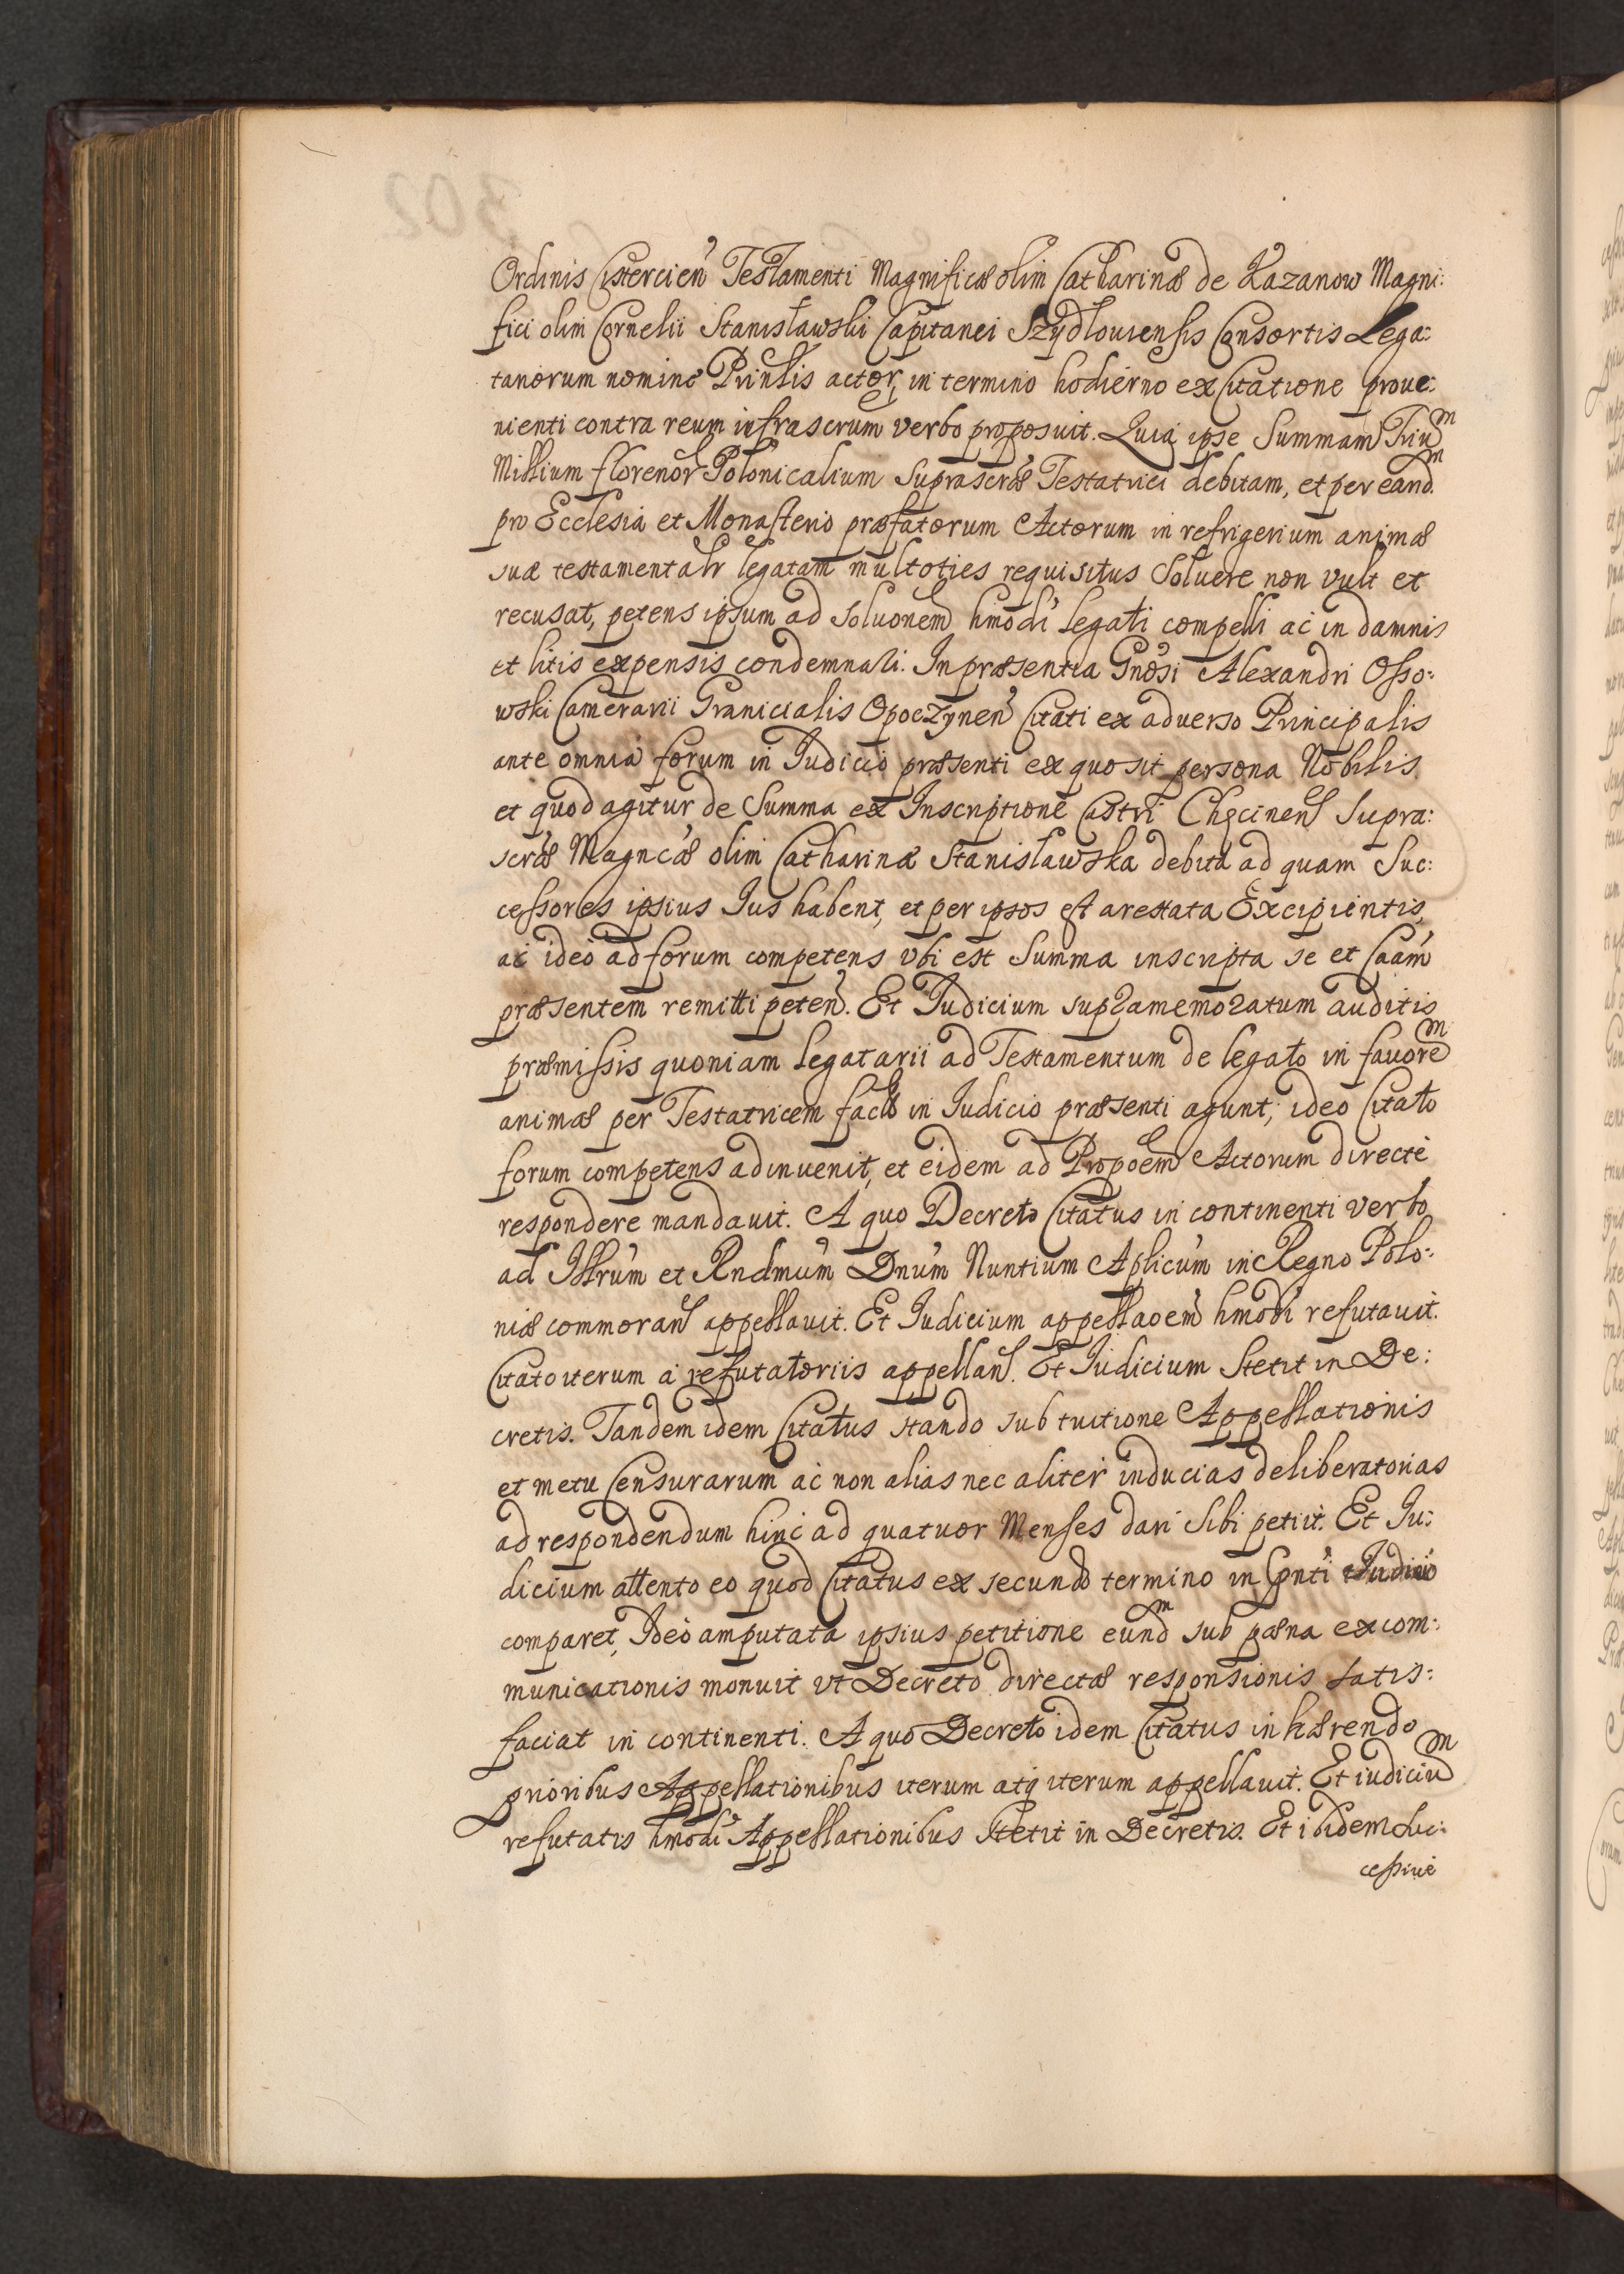 Ordinis Cistercien Testamenti Magnificæ olim Catharinæ de Kazanow Magni:
fici olim Cornelii Stanisławski Capitanei Szydlouiensis Consortis Lega:
tariorum nomine Prinlis actor, in termino hodierno ex Citatione proue:
nienti contra reum infrascrum verbo proposuit. Quia ipse Summam Triu͂m
Millium florenor Polonicalium suprascræ Testatrici debitam, et per eandm
pro Ecclesia et Monasterio præfatorum Actorum in refrigerium animæ
suæ testamentalr legatam multoties requisitus Soluere non vult et
recusat, petens ipsum ad soluonem hmodi legati compelli ac in damnis
et litis expensis condemnari. In præsentia Gnosi Alexandri Osso:
wski Camerarii Granicialis Opoczynen Citati ex aduerso Principalis
ante omnia forum in Judicio præsenti ex quo sit persona Nobilis
et quod agitur de Summa ex Inscriptione Castri Chęcinen Supra:
scræ Magncæ olim Catharinæ Stanisławska debita ad quam Suc:
cessores ipsius Jus habent, et per ipsos est arestata Excipientis,
ac ideo ad forum competens vbi est Summa inscripta se et Caam
præsentem remitti peten. Et Judicium supramemoratum auditis
præmissis quoniam legatarii ad Testamentum de legato in fauorem
animæ per Testatricem facto in Judicio præsenti agunt, ideo Citato
forum competens adinuenit, et eidem ad Propoem Actorum directe
respondere mandauit. A quo Decreto Citatus in continenti verbo
ad Illrum et Rndmum Dnum Nuntium Aplicum in Regno Polo:
niæ commoran appellauit. Et Judicium appellaoem hmodi refutauit.
Citato iterum a refutatoriis appellan. Et Judicium Stetit in De:
cretis. Tandem idem Citatus stando sub tuitione Appellationis
et metu Censurarum ac non alias nec aliter inducias deliberatorias
ad respondendum hinc ad quatuor Menses dari Sibi petiit. Et Ju:
dicium attento eo quod Citatus ex secundo termino in Gnti Judicio
comparet, Ideo amputata ipsius petitione eundm sub pæna excom:
municationis monuit vt Decreto directæ responsionis satis:
faciat in continenti. A quo Decreto idem Citatus inhærendo
prioribus Appellationibus iterum atq iterum appellauit. Et iudicium
refutatis hmodi Appellationibus Stetit in Decretis. Et ibidem Suc:
cessiue